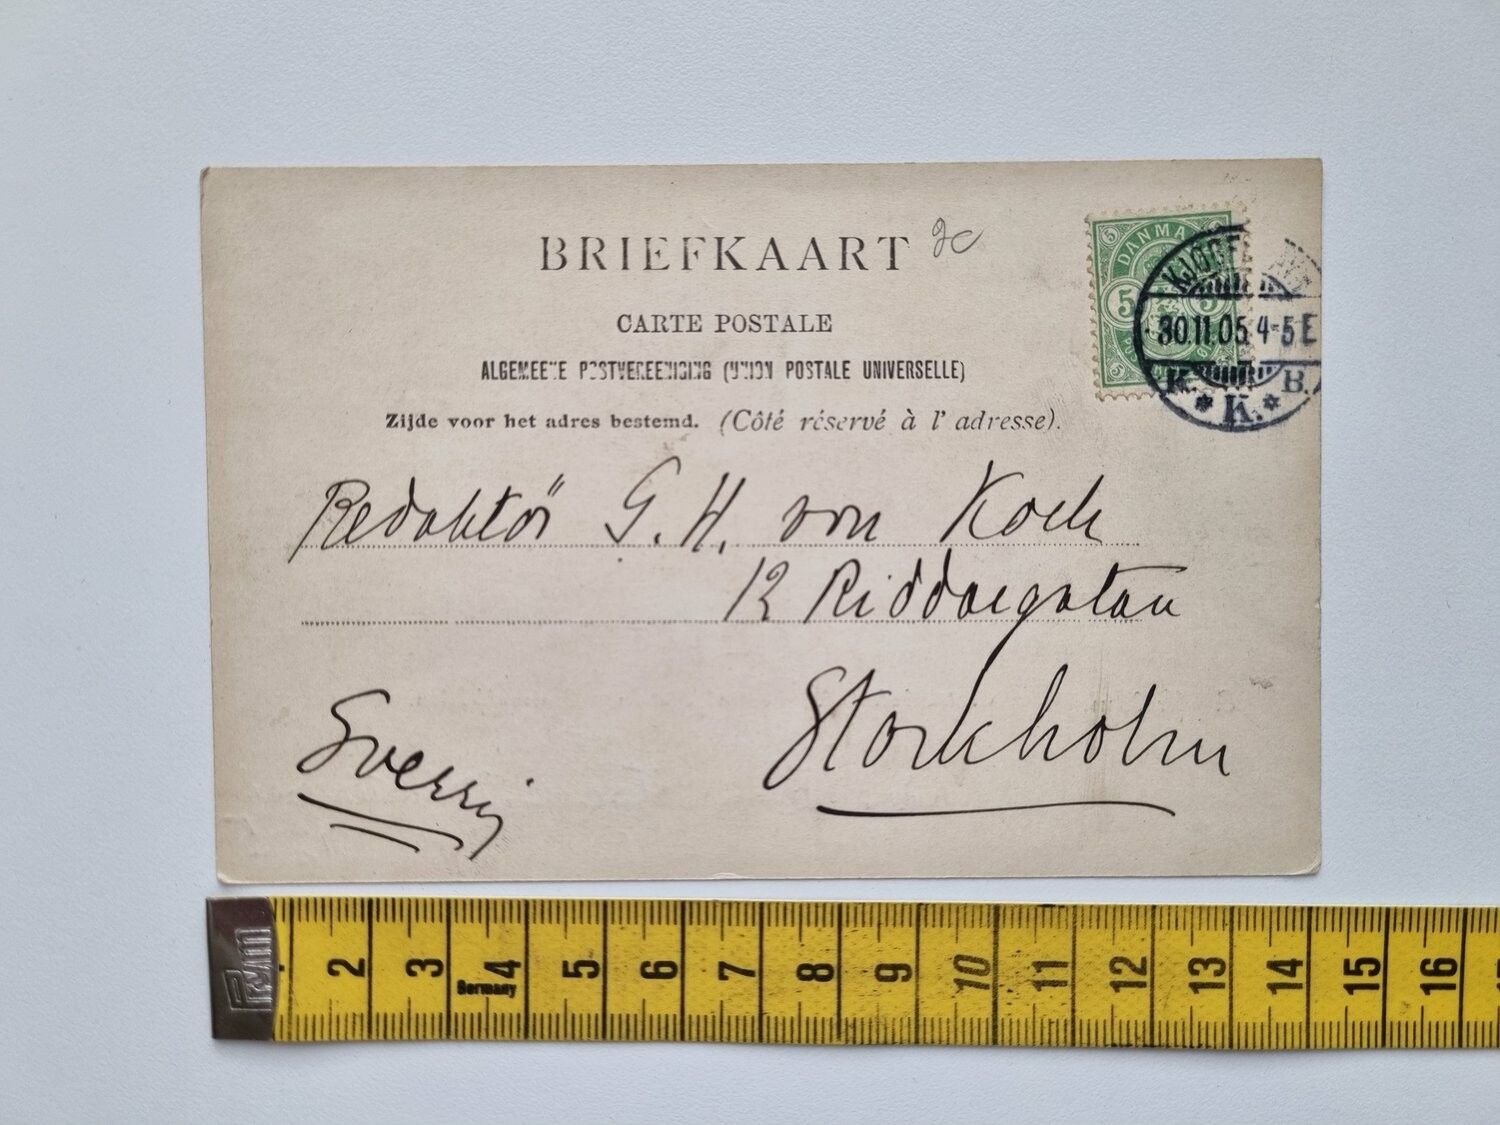 BRIEFKAART
CARTE POSTALE
ALGEMEENE POSTVEREENIGING (UNION POSTALE UNIVERSELLE)
Zijde voor het adres bestemd. (Côté réservé à l' adresse).
DANMARK
5 5
KJØGE
30.11.05 4-5 E
K. B.
K.
Redaktör G. H. von Koch
12 Riddaregatan
Stockholm
Sverrig
Prym
2 3 4 5 6 7 8 9 10 11 12 13 14 15 16
Germany